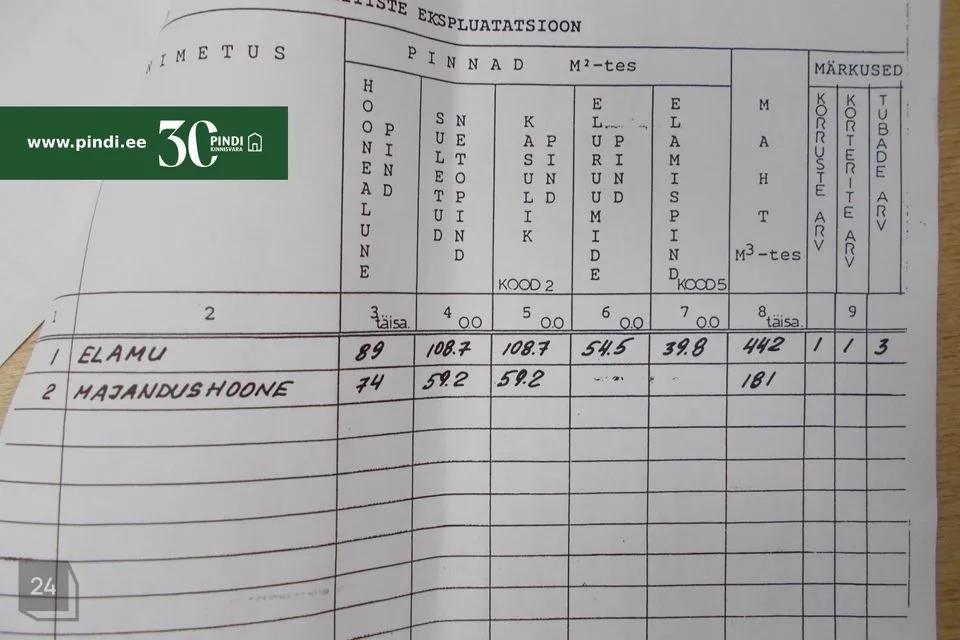 EKSPLUATATSIOON
PINNAD M²-tes
MÄRKUSED
NIMETUS
HOONEALUNE PIND
SULETUD NETOPIND
KASULIK PIND
KOOD 2
ELURUUMIDE PIND
ELAMISPIND
KOOD 5
MAHT
M³-tes
KORRUSTE ARV
KORTERITE ARV
TUBADE ARV
www.pindi.ee 30 PINDI
KINNISVARA
1 2 3 täisa. 4 0.0 5 0.0 6 0.0 7 0.0 8 täisa. 9
1 ELAMU 89 108.7 108.7 54.5 39.8 442 1 1 3
2 MAJANDUSHOONE 74 59.2 59.2 - - 181
24